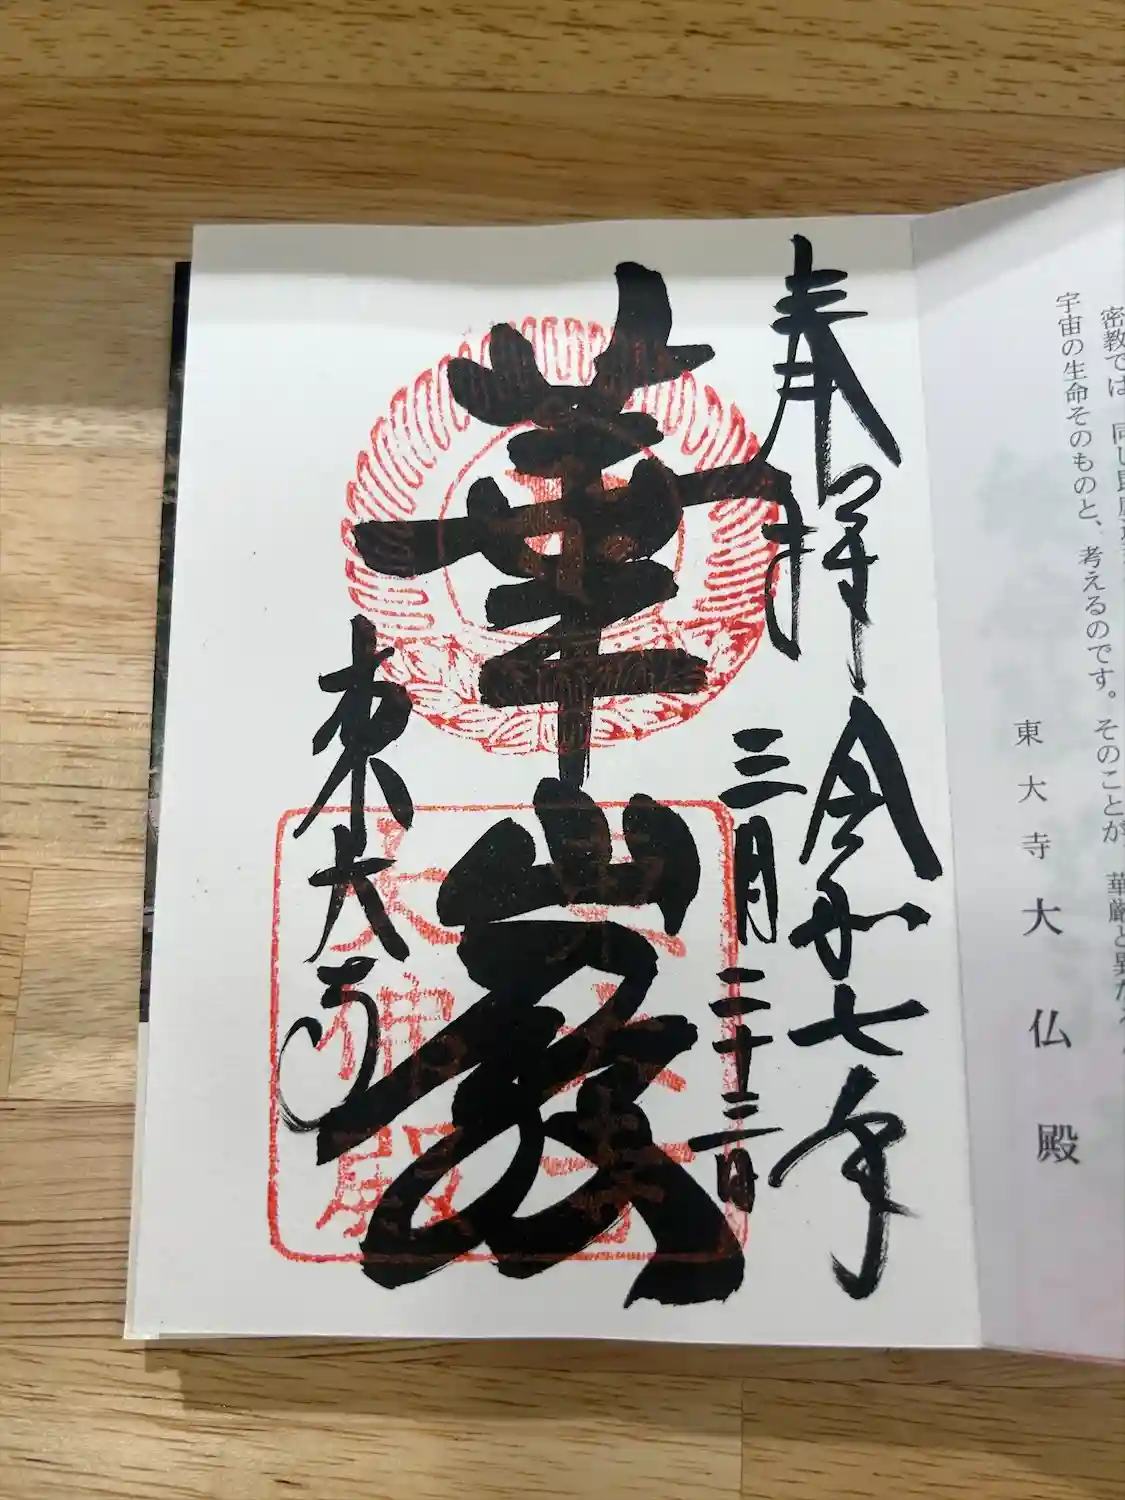 密教では、同じ
宇宙の生命そのものと、考えるのです。そのことが、華厳と異な
東大寺大仏殿
奉拝 令和七年
三月二十三日
華厳
東大寺